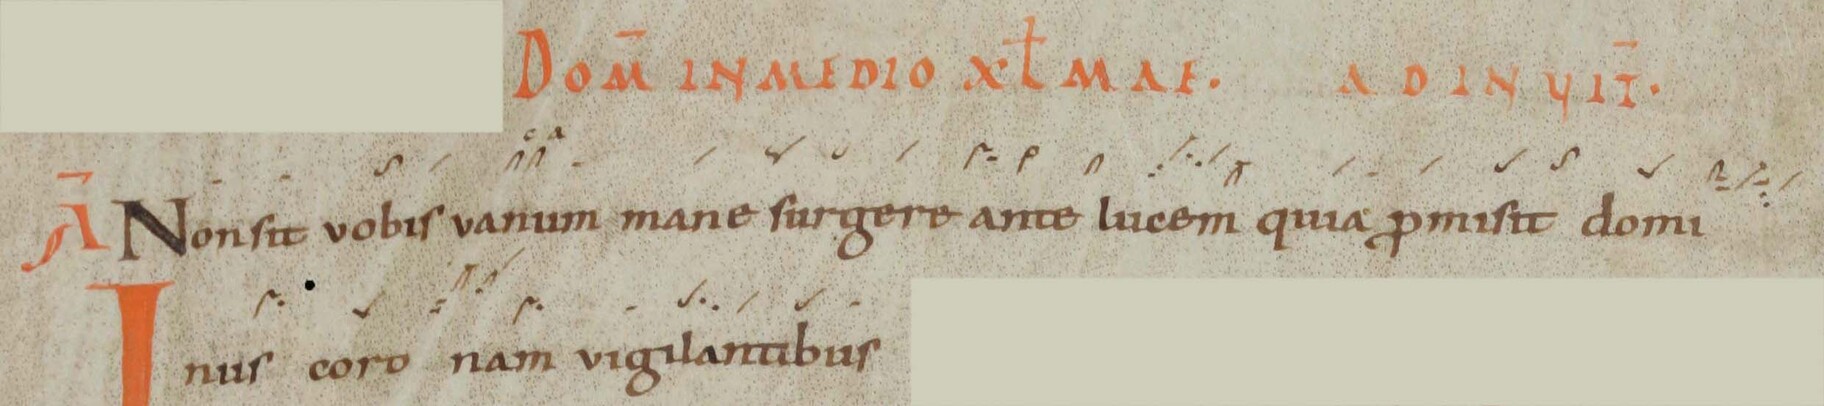 DOM̄ IN MEDIO XL̄MAE. AD INVIT̄.
Ā NON sit vobis vanum mane surgere ante lucem quia p̱misit domi
nus coro nam vigilantibus